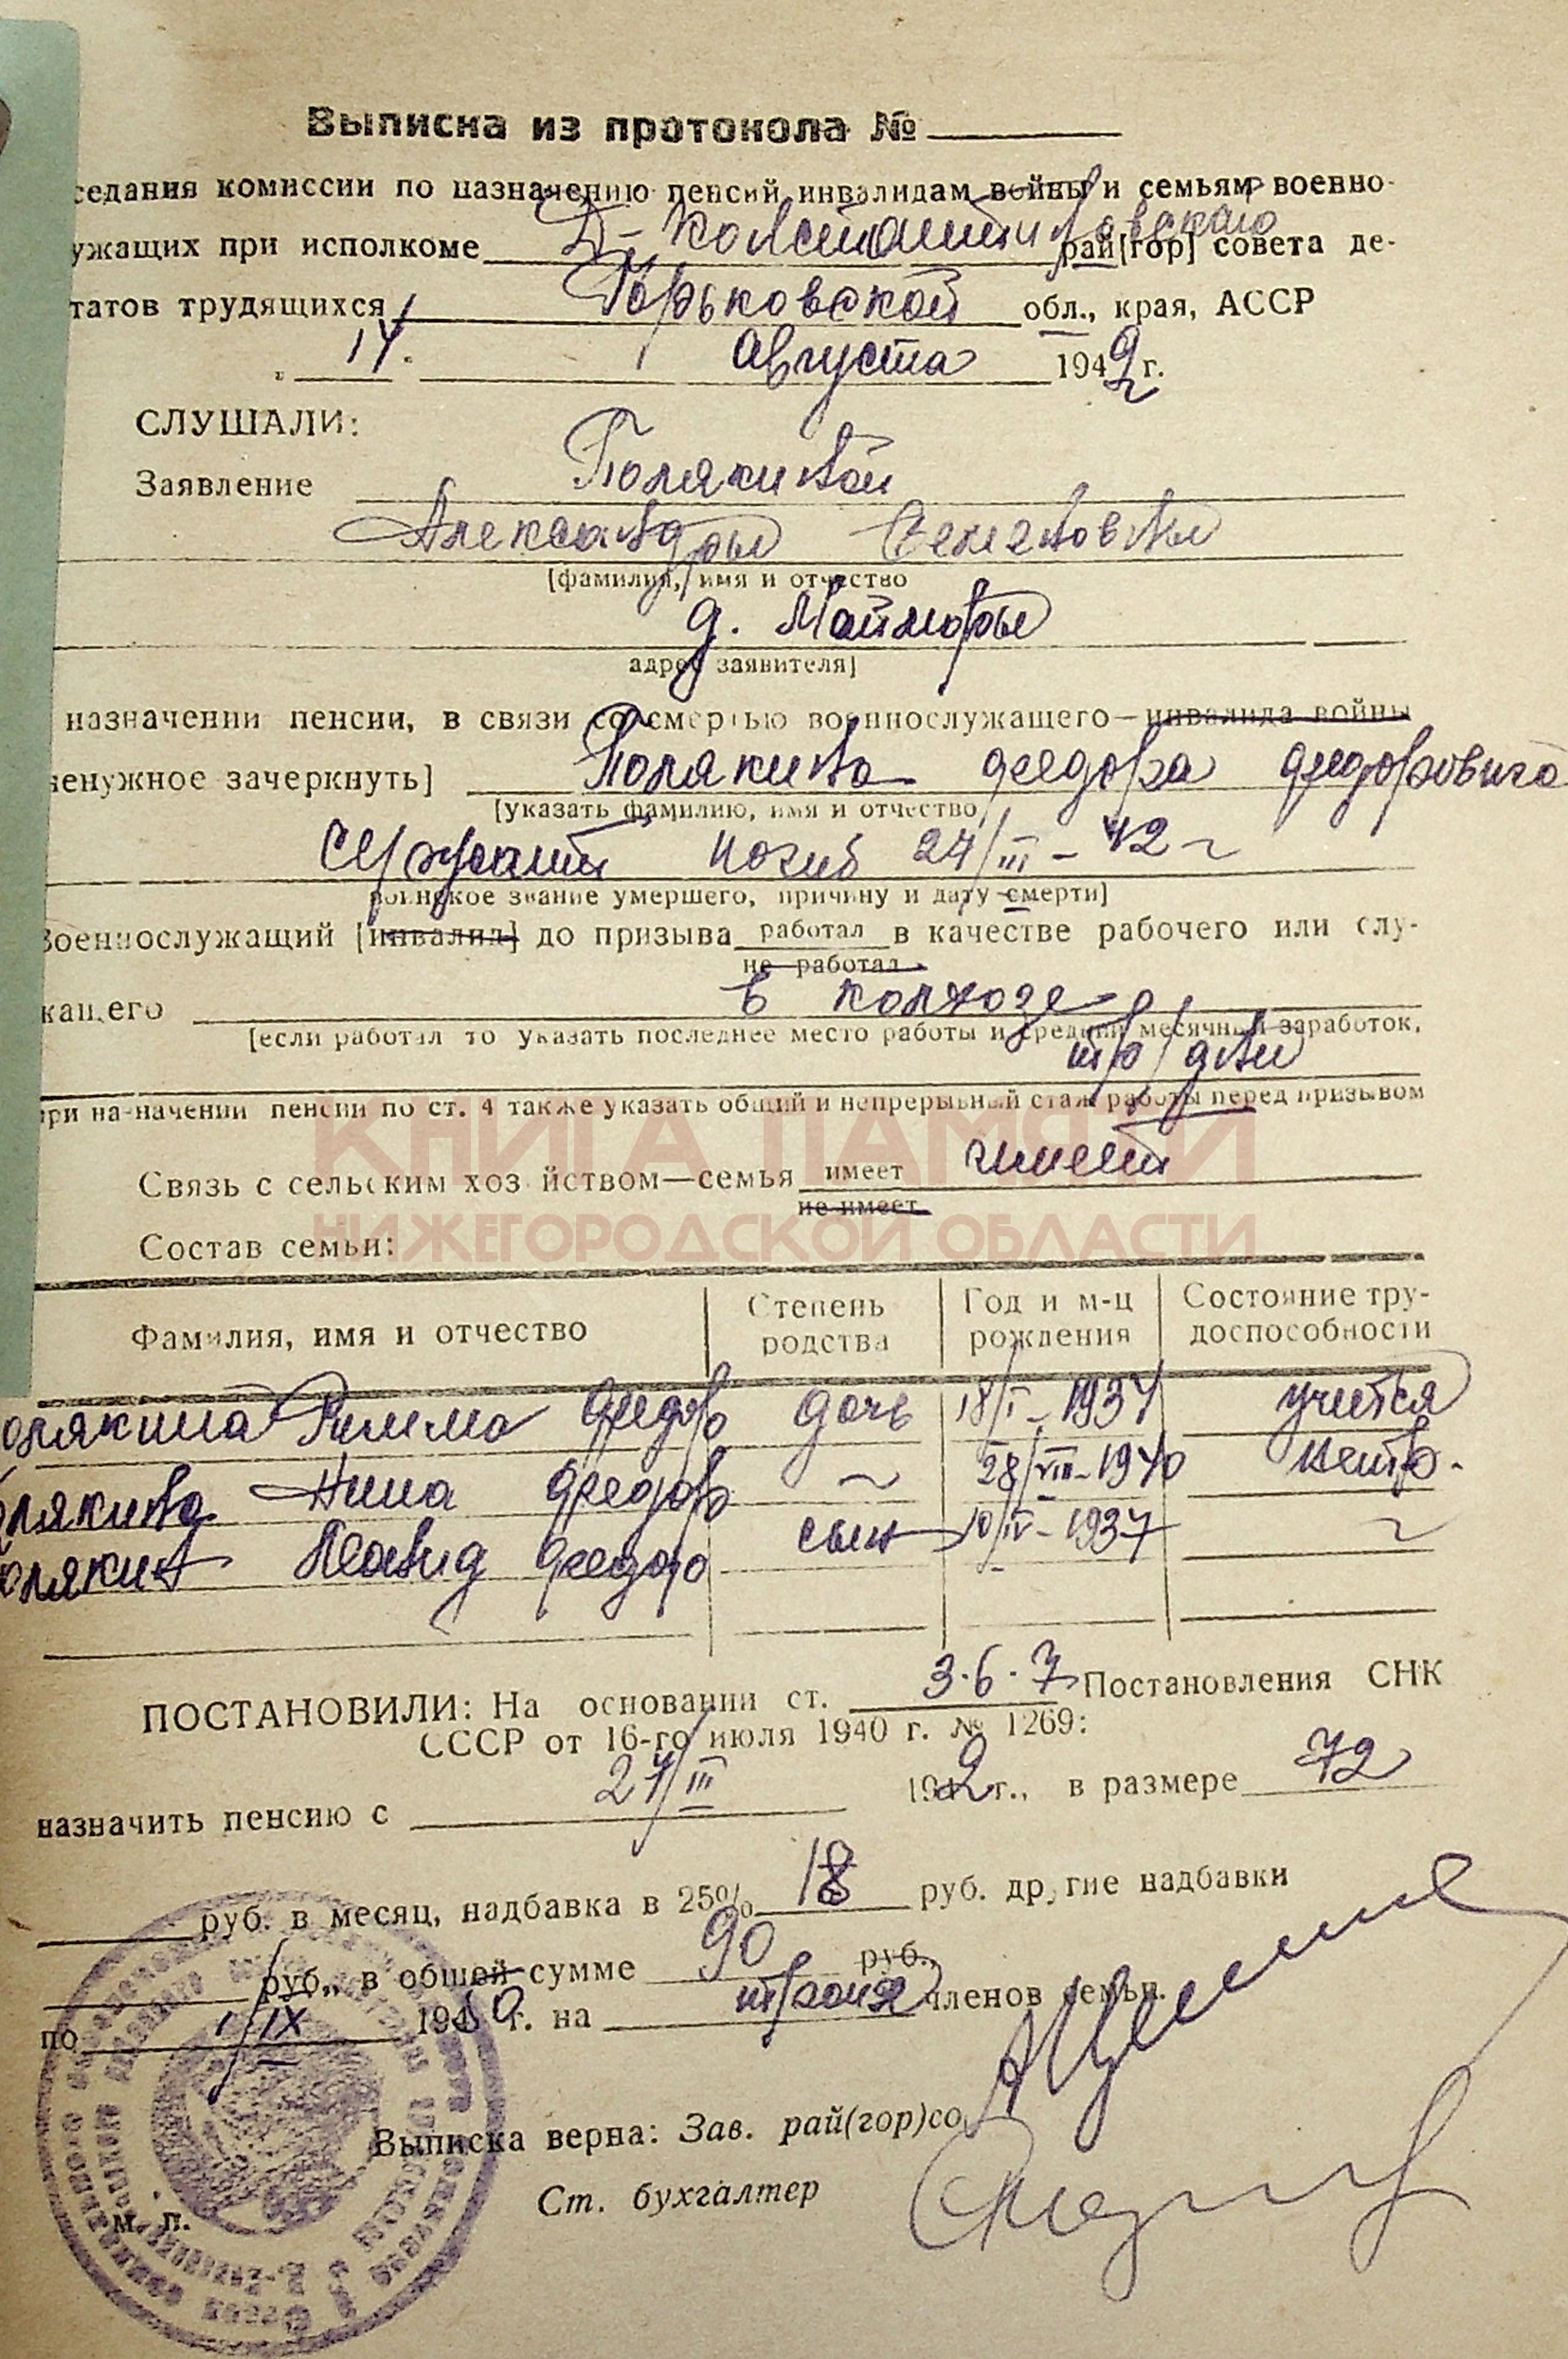 Выписка из протокола №
седания комиссии по назначению пенсий инвалидам войны и семьям военно-
ужащих при исполкоме Д-Константиновского рай[гор] совета де-
татов трудящихся Горьковской обл., края, АССР
„ 14. августа 1942 г.
СЛУШАЛИ:
Заявление Полякиной
Александры Семеновны
[фамилия, имя и отчество
д. Майморы
адрес заявителя]
назначении пенсии, в связи со смертью военнослужащего—инвалида войны
ненужное зачеркнуть] Полякина Федора Федоровича
[указать фамилию, имя и отчество,
Сержант погиб 24/III-42 г
воинское звание умершего, причину и дату смерти]
Военнослужащий [инвалид] до призыва работал в качестве рабочего или слу-
не работал
жащего в колхозе
[если работал то указать последнее место работы и средний месячный заработок,
тр/дни
при назначении пенсии по ст. 4 также указать общий и непрерывный стаж работы перед призывом
КНИГА ПАМЯТИ
Связь с сельским хозяйством—семья имеет имеет
не имеет
НИЖЕГОРОДСКОЙ ОБЛАСТИ
Состав семьи:
Фамилия, имя и отчество Степень родства Год и м-ц рождения Состояние тру-доспособности
олякина Римма Федор дочь 18/I-1934 учится
олякина Нина Федор ~ 28/VIII-1940 нетр.
олякин Леонид Федор сын 10/IV-1937 ~
ПОСТАНОВИЛИ: На основании ст. 3·6·7 Постановления СНК
СССР от 16-го июля 1940 г. № 1269:
назначить пенсию с 24/III 1942 г., в размере 72
руб. в месяц, надбавка в 25% 18 руб. другие надбавки
руб., в общей сумме 90 руб.,
по 1/IX г. на троих членов семьи.
Выписка верна: Зав. рай(гор)со
Ст. бухгалтер
м. п.